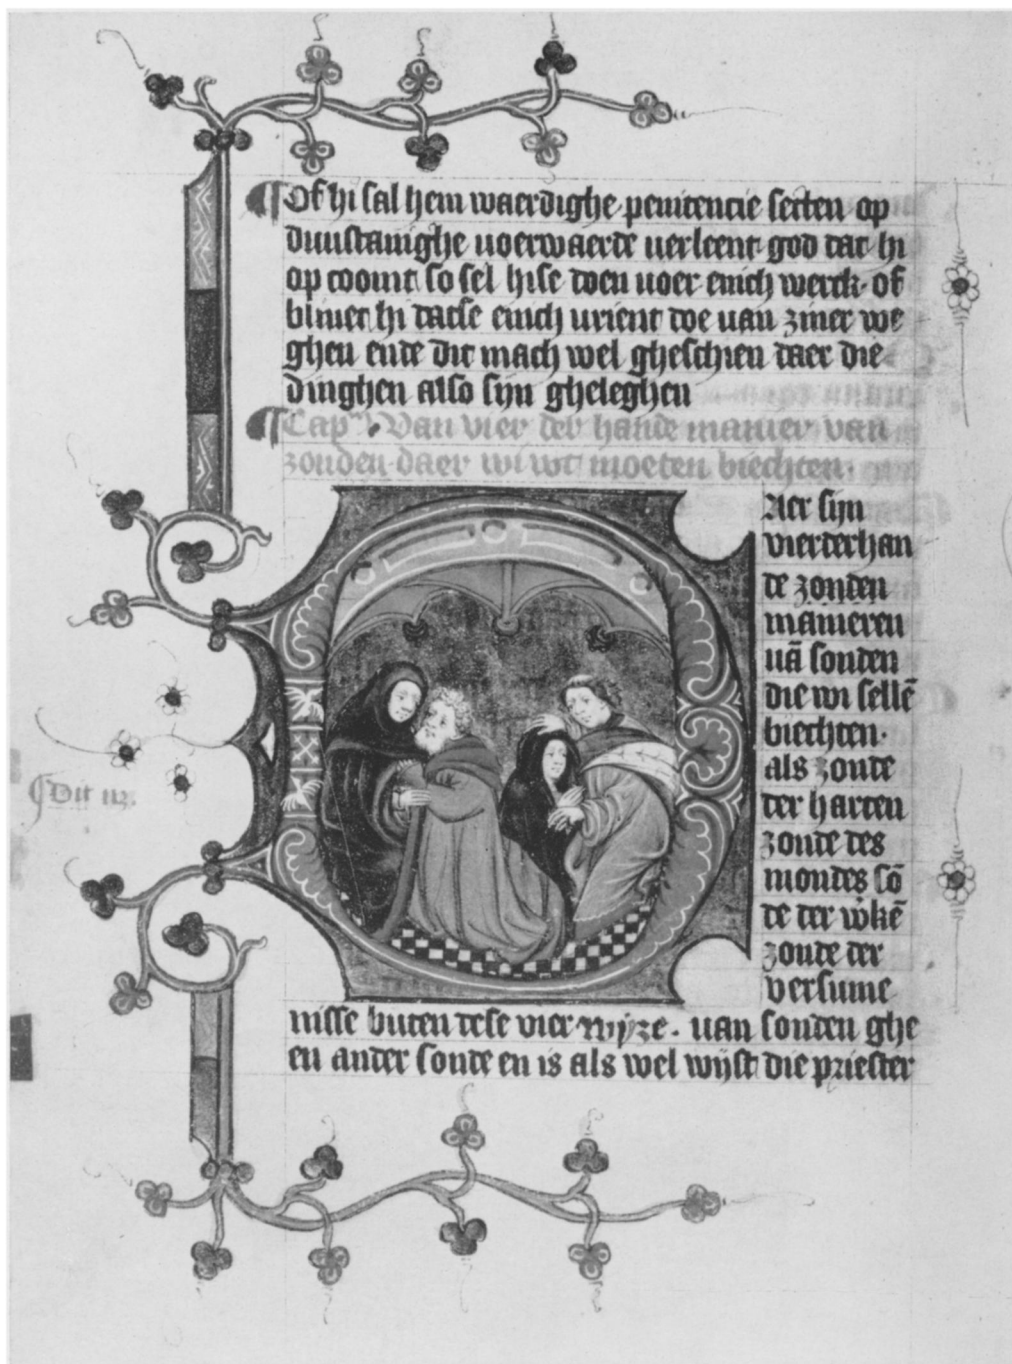 Of hi sal hem waerdighe penitencie setten op
dusdanighe voerwaerde verleent god dat hi
op coomt so sel hise doen voer enich werck. of
bliuet hi datse enich vrient doe van ziner we
ghen ende dit mach wel gheschien daer die
dinghen also sijn gheleghen
Capm. Van vier der hande manier van
zonden daer wi wt moeten biechten.
Aer sijn
vierderhan
de zonden
manieren
uā sonden
die wi sellē
biechten.
als zonde
der harten
zonde des
mondes sō
de der w̄kē
zonde der
versume
Dit is.
nisse buten dese vier wijze. uan sonden ghe
en ander sonde en is als wel wijst die priester